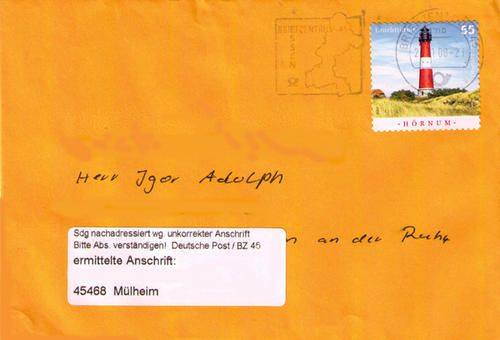 BRIEFZENTRUM 45
ESSEN
Leuchttürme 55
BRIEFZENTRUM
-HÖRNUM-
Herr Igor Adolph
Sdg nachadressiert wg. unkorrekter Anschrift
Bitte Abs. verständigen! Deutsche Post / BZ 46
an der Ruhr
ermittelte Anschrift:
45468 Mülheim